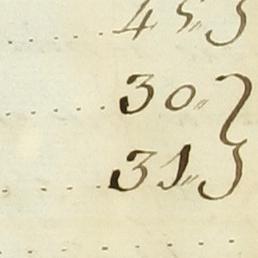 ....45„}
.....30„}
....31„}